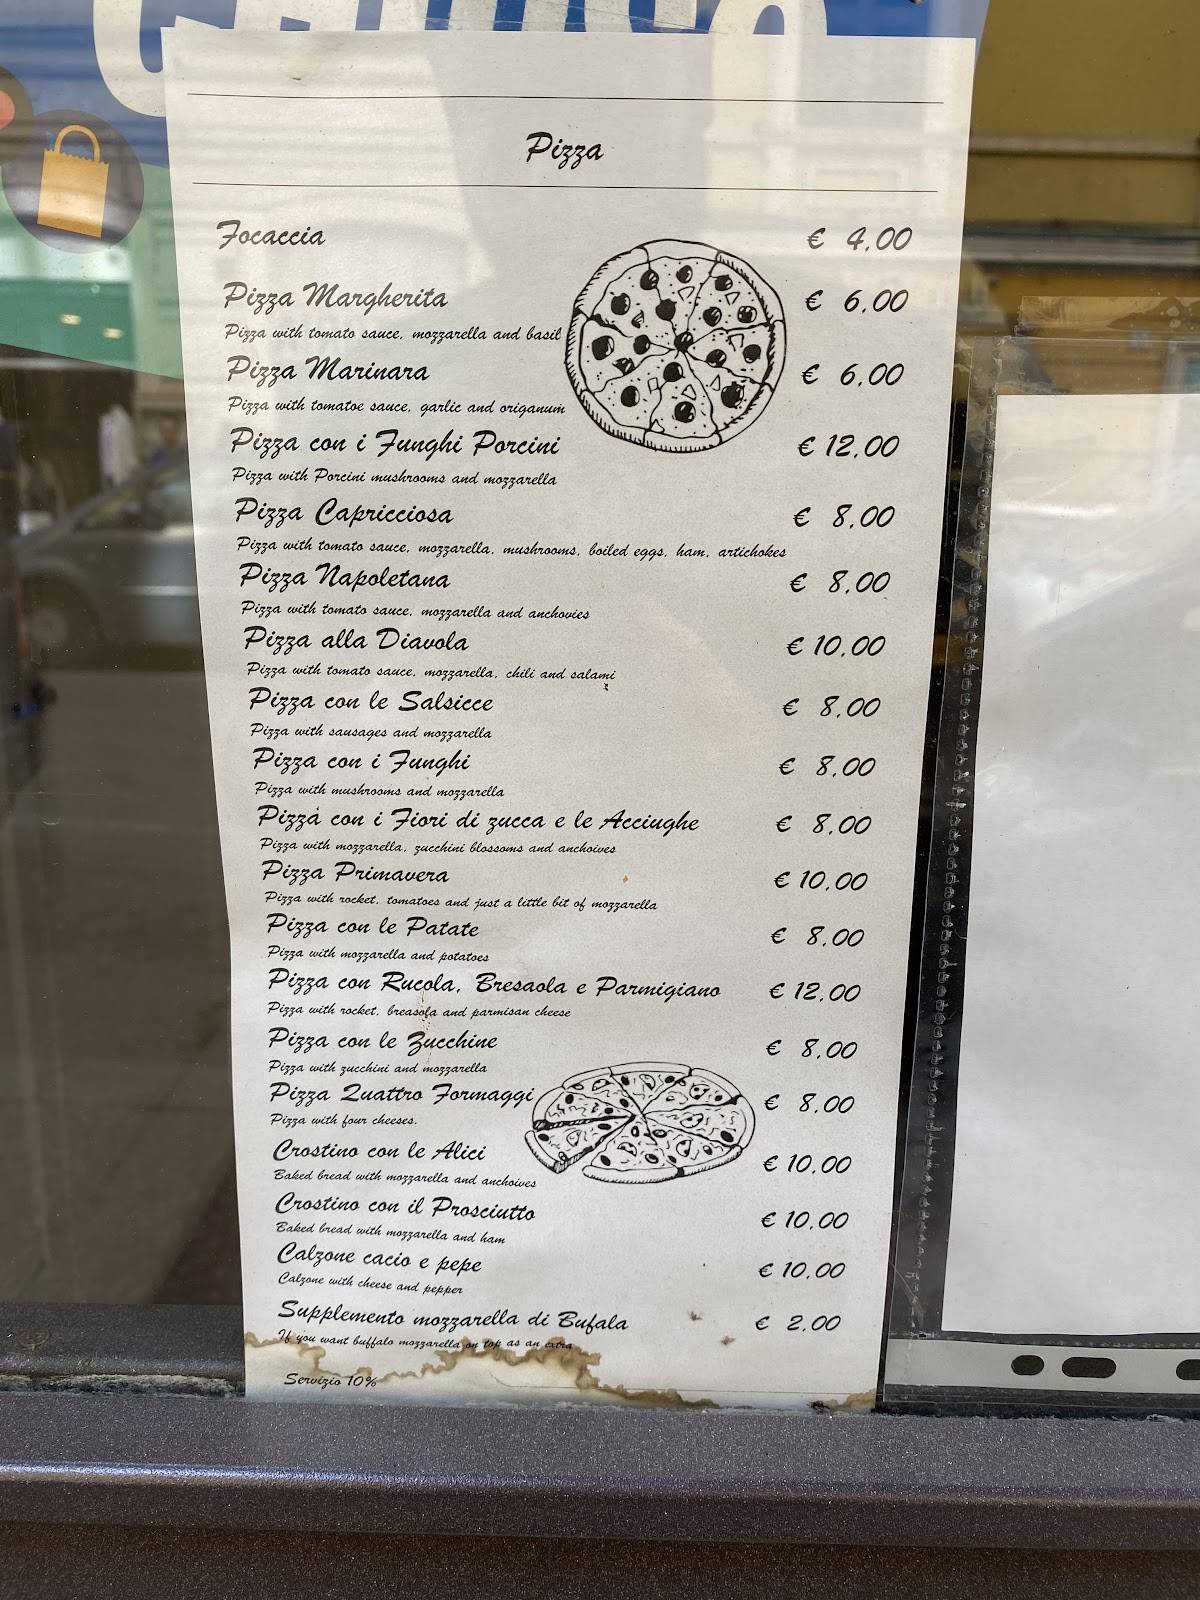 Pizza
Focaccia € 4,00
Pizza Margherita € 6,00
Pizza with tomato sauce, mozzarella and basil
Pizza Marinara € 6,00
Pizza with tomatoe sauce, garlic and origanum
Pizza con i Funghi Porcini € 12,00
Pizza with Porcini mushrooms and mozzarella
Pizza Capricciosa € 8,00
Pizza with tomato sauce, mozzarella, mushrooms, boiled eggs, ham, artichokes
Pizza Napoletana € 8,00
Pizza with tomato sauce, mozzarella and anchovies
Pizza alla Diavola € 10,00
Pizza with tomato sauce, mozzarella, chili and salami
Pizza con le Salsicce € 8,00
Pizza with sausages and mozzarella
Pizza con i Funghi € 8,00
Pizza with mushrooms and mozzarella
Pizza con i Fiori di zucca e le Acciughe € 8,00
Pizza with mozzarella, zucchini blossoms and anchoives
Pizza Primavera € 10,00
Pizza with rocket, tomatoes and just a little bit of mozzarella
Pizza con le Patate € 8,00
Pizza with mozzarella and potatoes
Pizza con Rucola, Bresaola e Parmigiano € 12,00
Pizza with rocket, breasola and parmisan cheese
Pizza con le Zucchine € 8,00
Pizza with zucchini and mozzarella
Pizza Quattro Formaggi € 8,00
Pizza with four cheeses.
Crostino con le Alici € 10,00
Baked bread with mozzarella and anchoives
Crostino con il Prosciutto € 10,00
Baked bread with mozzarella and ham
Calzone cacio e pepe € 10,00
Calzone with cheese and pepper
Supplemento mozzarella di Bufala € 2,00
If you want buffalo mozzarella on top as an extra
Servizio 10%